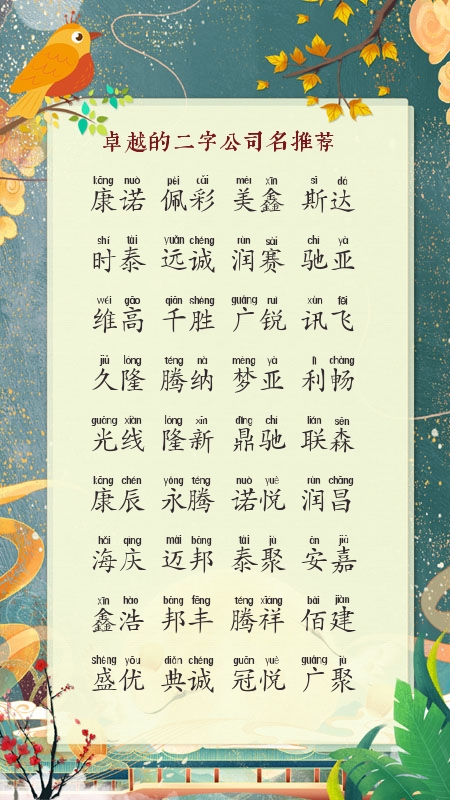 卓越的二字公司名推荐
kāng nuò pèi cǎi měi xīn sī dá
康诺 佩彩 美鑫 斯达
shí tài yuǎn chéng rùn sài chí yà
时泰 远诚 润赛 驰亚
wéi gāo qiān shèng guǎng ruì xùn fēi
维高 千胜 广锐 讯飞
jiǔ lóng téng nà mèng yà lì chàng
久隆 腾纳 梦亚 利畅
guāng xiàn lóng xīn dǐng chí lián sēn
光线 隆新 鼎驰 联森
kāng chén yǒng téng nuò yuè rùn chāng
康辰 永腾 诺悦 润昌
hǎi qìng mài bāng tài jù ān jiā
海庆 迈邦 泰聚 安嘉
xīn hào bāng fēng téng xiáng bǎi jiàn
鑫浩 邦丰 腾祥 佰建
shèng yōu diǎn chéng guān yuè guǎng jù
盛优 典诚 冠悦 广聚